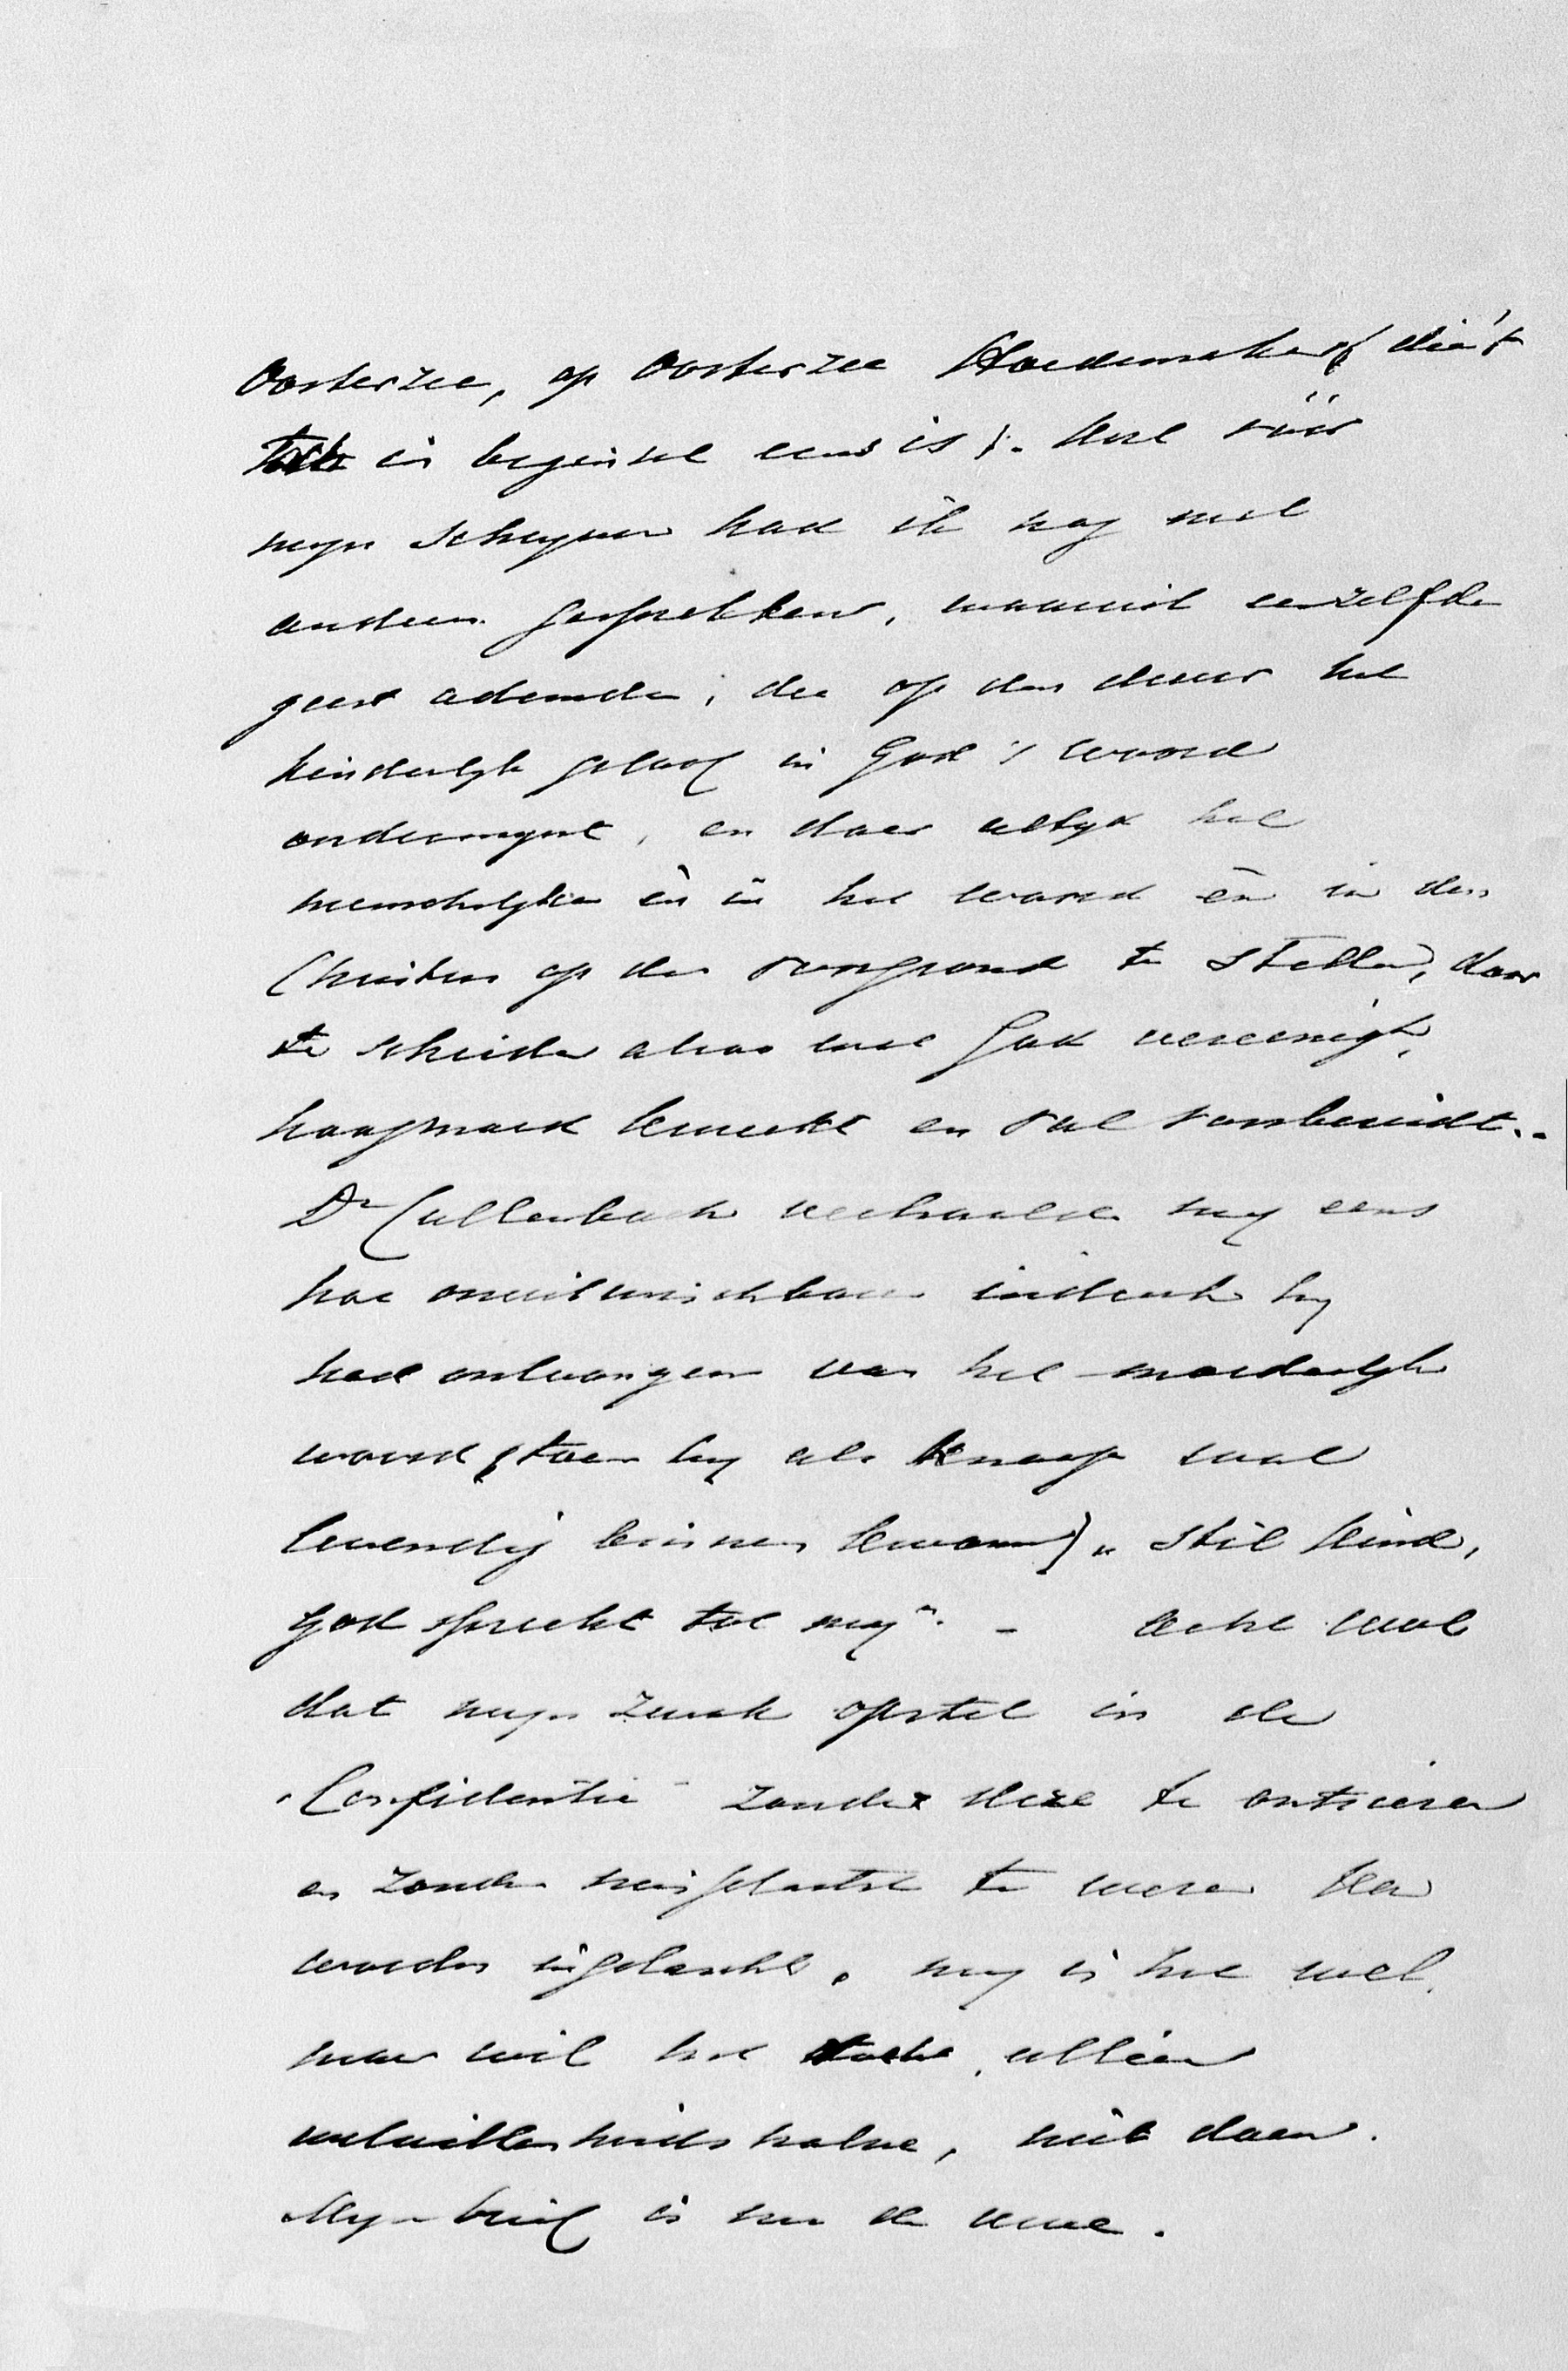 Oosterzee, op Oosterzee Hoedemaker (die 't
toch in beginsel eens is). Kort vóór
mijn schrijven had ik nog met
anderen gesprekken, waaruit eenzelfde
geest ademde, die op den duur het
kinderlijk geloof in God's woord
ondermijnt, en door altijd het
menschelijke èn in het woord èn in den
Christus op den voorgrond te stellen, door
te scheiden alvast wat God vereenigt,
hoogmoed kweekt en val voorbereidt.
Dr Callenbach verhaalde mij eens
hoe onuitwischbaren indruk hij
had ontvangen van het moederlijk
woord, (toen hij als knaap wat
levendig binnen kwam) "stil kind,
God spreekt tot mij". - Acht U
dat mijn zwak opstel in de
"Confidentie" zonder deze te ontsieren
en zonder misplaatst te wezen kan
worden ingelascht, mij is het wel,
maar wil het , alleen
welwillendheidshalve, niet doen.
Mijn brief is nu de uwe.